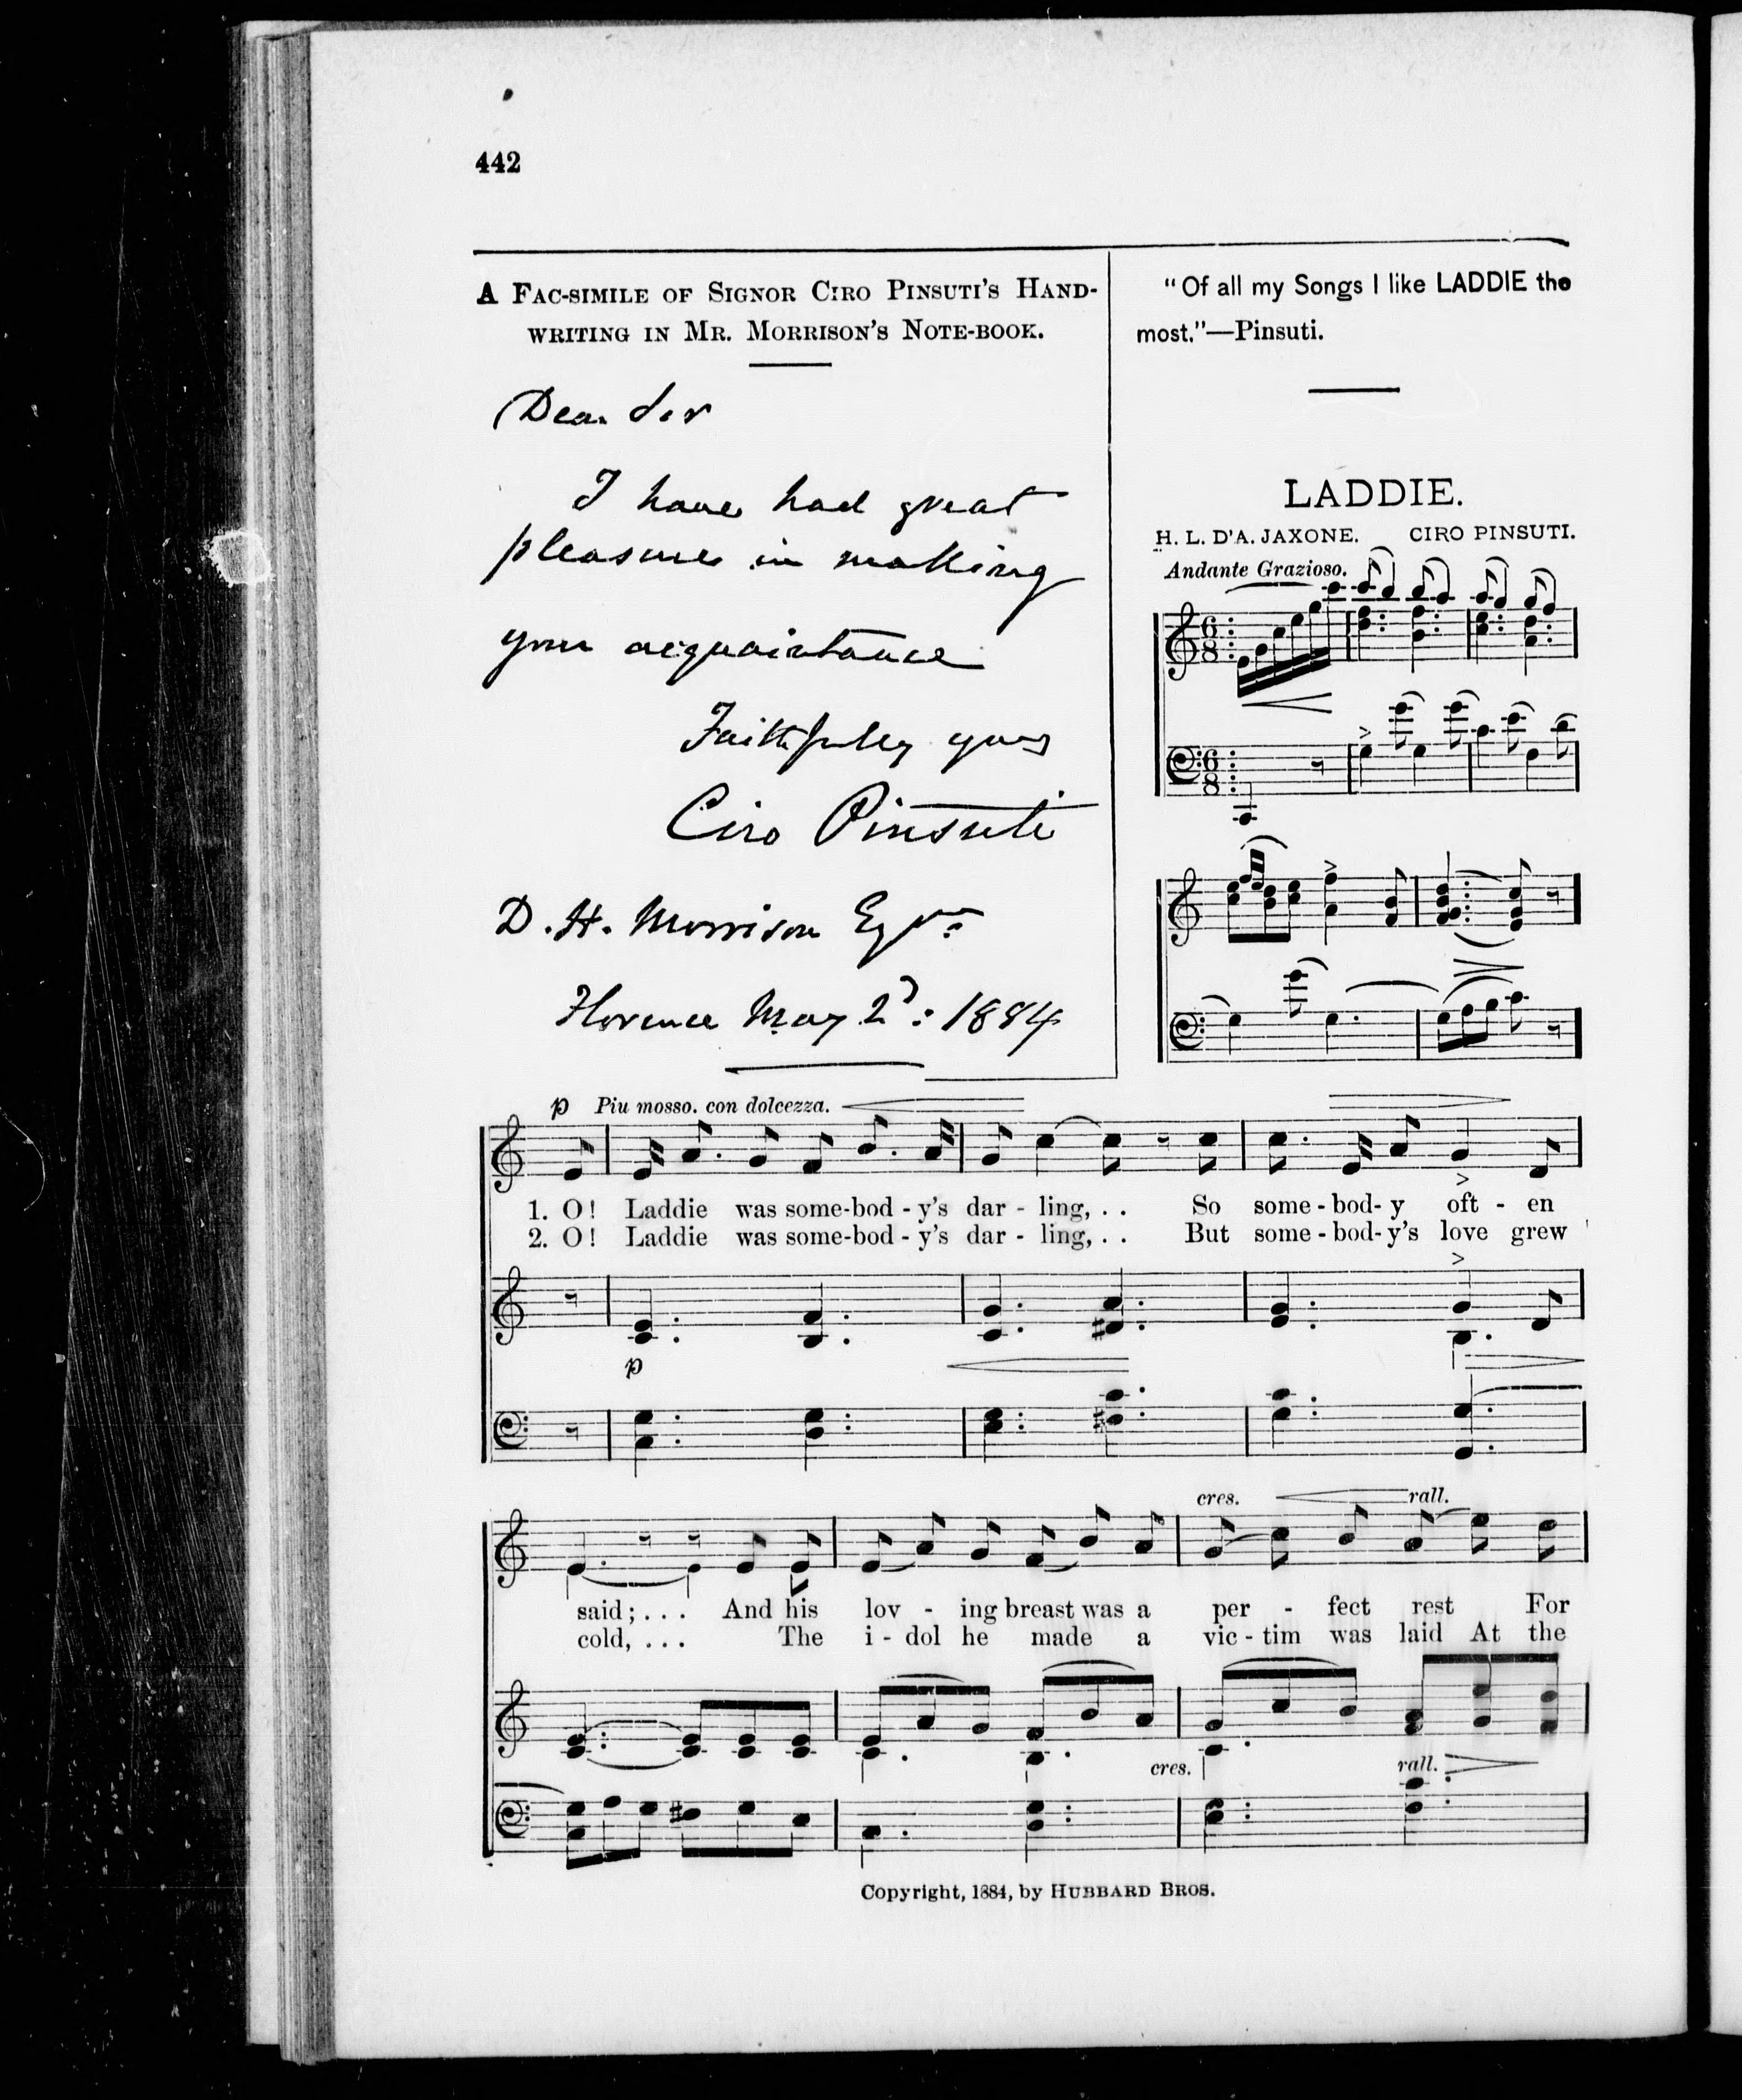 442
A FAC-SIMILE OF SIGNOR CIRO PINSUTI'S HAND-
WRITING IN MR. MORRISON'S NOTE-BOOK.
Dear Sir
I have had great
pleasure in making
your acquaintance
Faithfully yours
Ciro Pinsuti
D. H. Morrison Eqre
Florence May 2d: 1884
"Of all my Songs I like LADDIE the
most."—Pinsuti.
LADDIE.
H. L. D'A. JAXONE. CIRO PINSUTI.
Andante Grazioso.
p Piu mosso. con dolcezza.
1. O! Laddie was some-bod-y's dar-ling, . . So some-bod-y oft-en
2. O! Laddie was some-bod-y's dar-ling, . . But some-bod-y's love grew
p
cres. rall.
said; . . . And his lov-ing breast was a per-fect rest For
cold, . . . The i-dol he made a vic-tim was laid At the
cres. rall.
Copyright, 1884, by HUBBARD BROS.